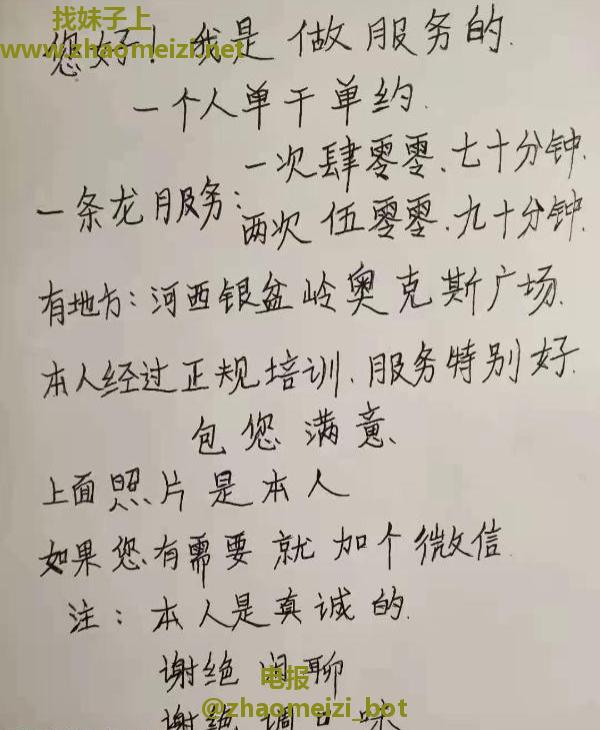 找妹子上
www.zhaomeizi.net
您好！我是做服务的.
一个人单干单约.
一条龙服务：
一次肆零零.七十分钟.
两次伍零零.九十分钟.
有地方：河西银盆岭奥克斯广场.
本人经过正规培训.服务特别好.
包您满意、
上面照片是本人
如果您有需要就加个微信.
注：本人是真诚的.
谢绝闲聊
电报
@zhaomeizi_bot
谢绝调口味